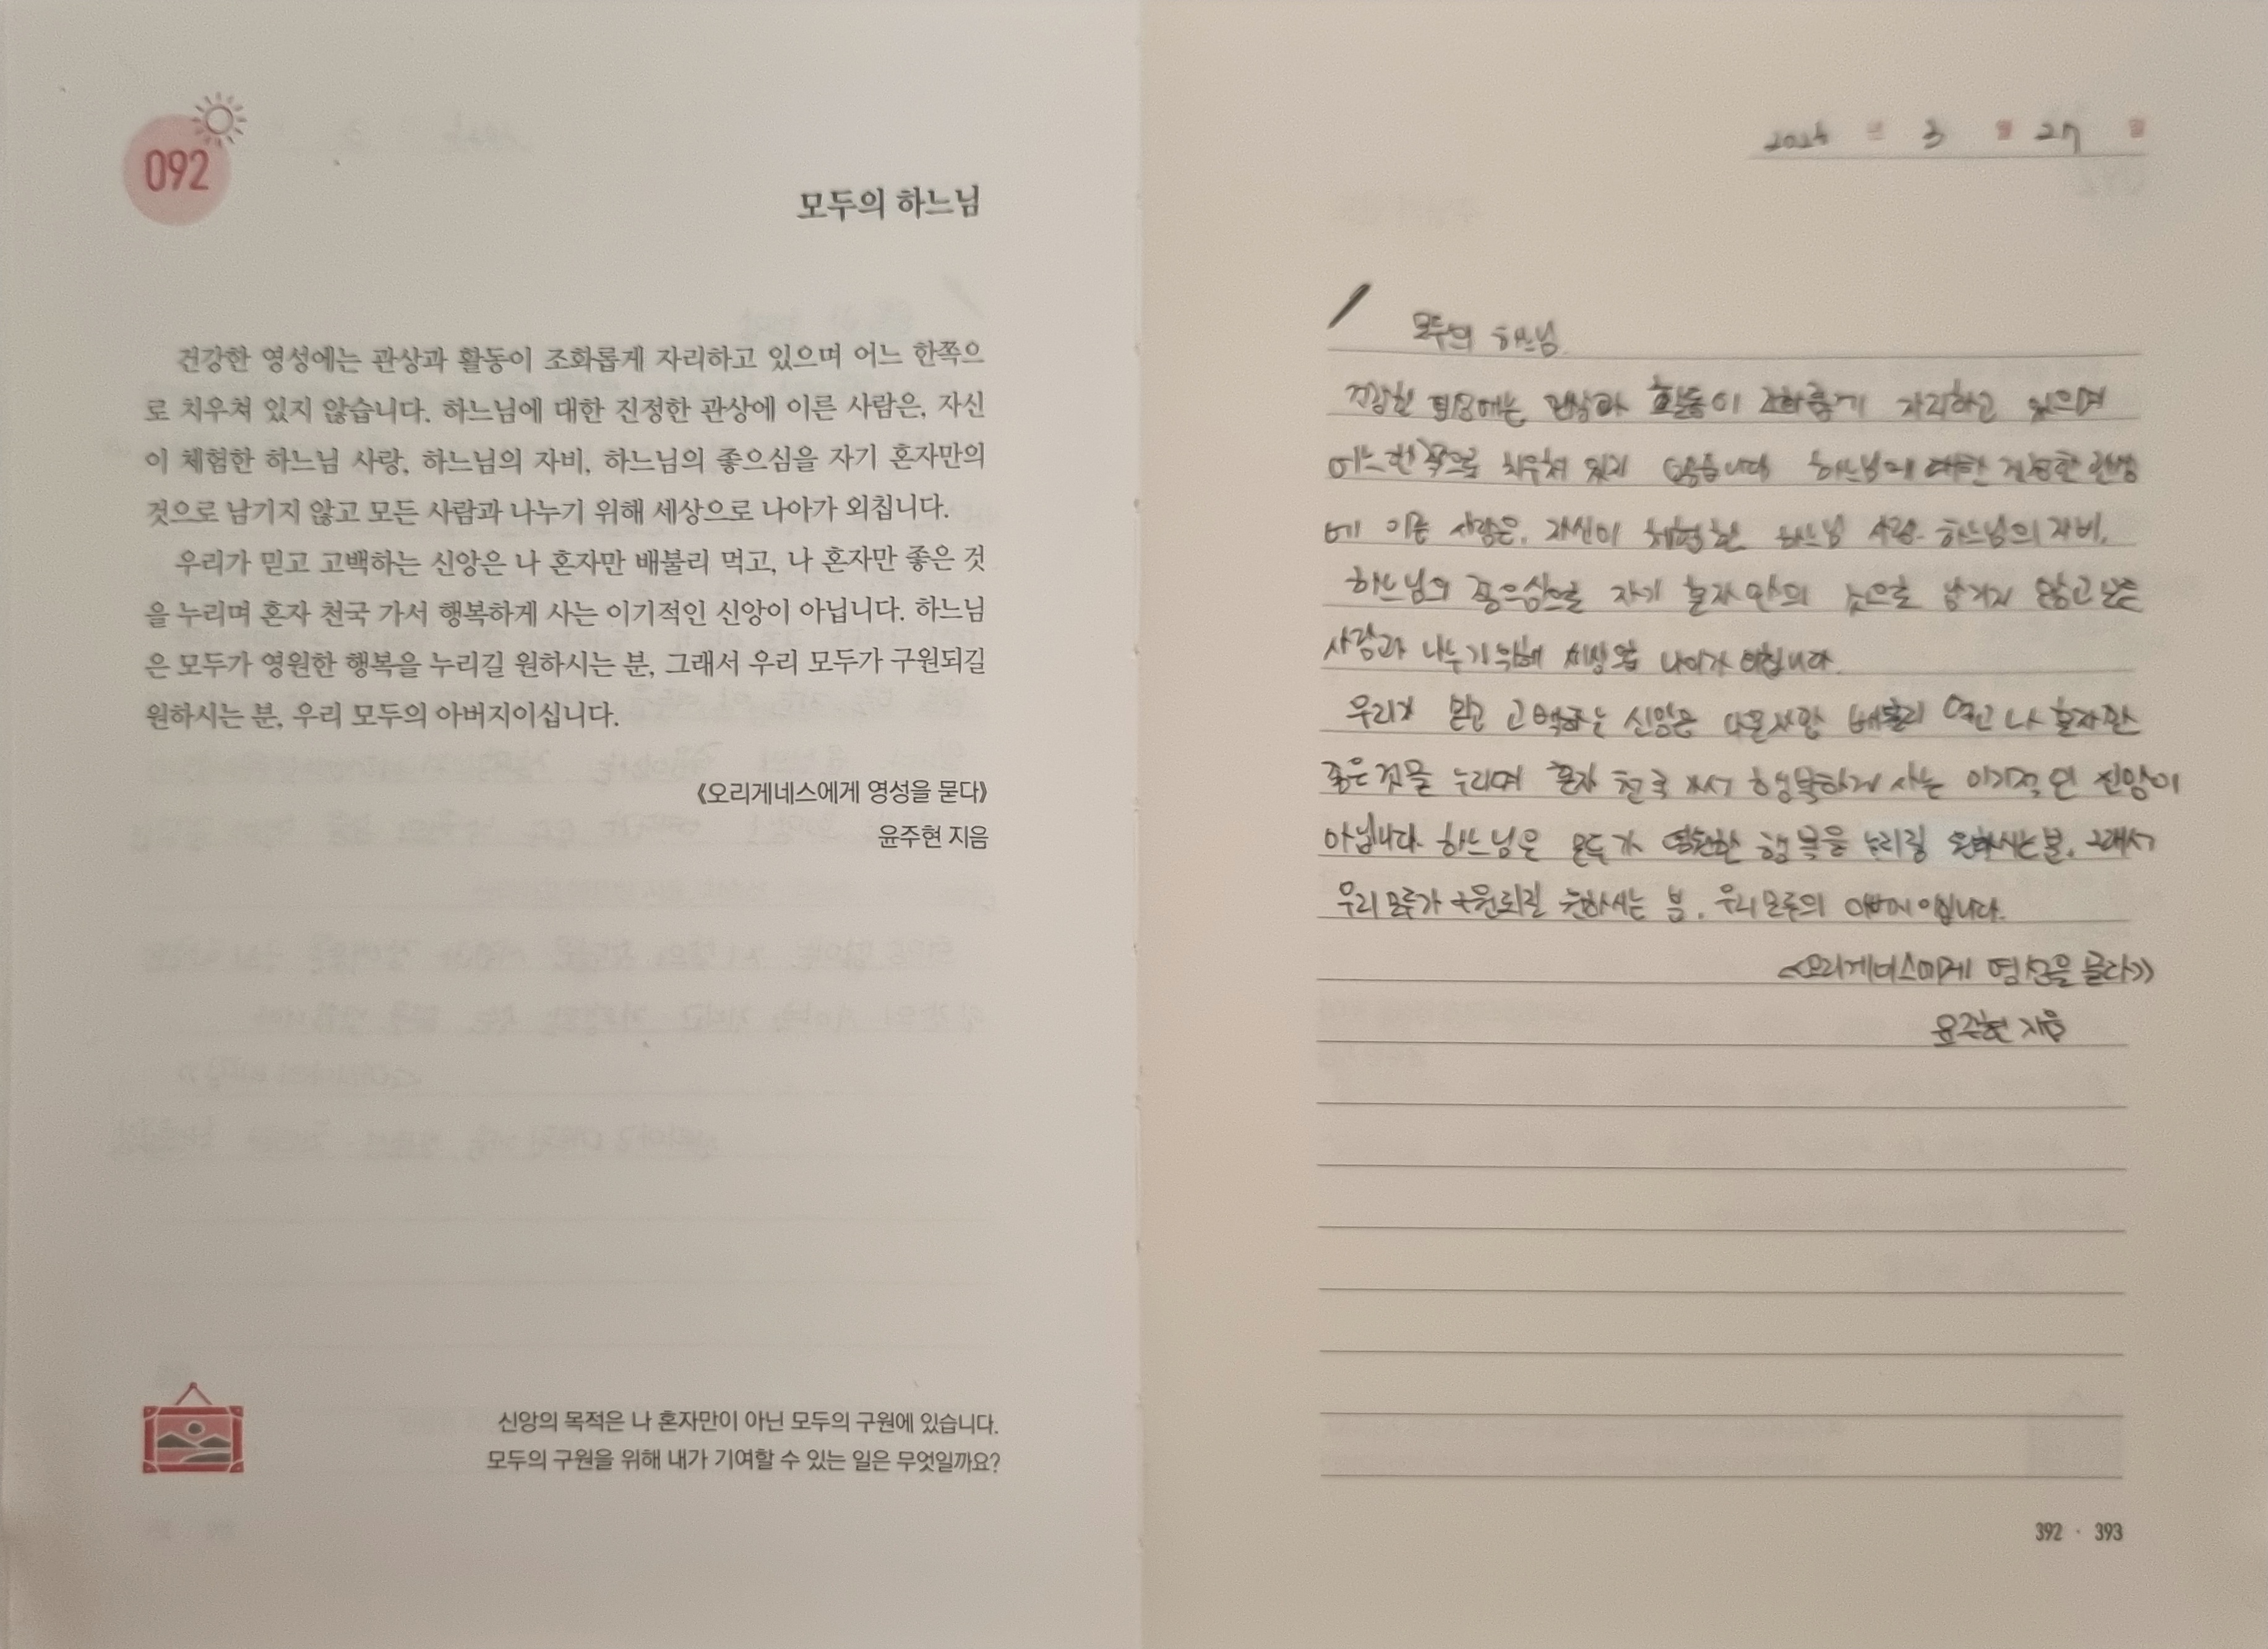 092
모두의 하느님
건강한 영성에는 관상과 활동이 조화롭게 자리하고 있으며 어느 한쪽으
로 치우쳐 있지 않습니다. 하느님에 대한 진정한 관상에 이른 사람은, 자신
이 체험한 하느님 사랑, 하느님의 자비, 하느님의 좋으심을 자기 혼자만의
것으로 남기지 않고 모든 사람과 나누기 위해 세상으로 나아가 외칩니다.
우리가 믿고 고백하는 신앙은 나 혼자만 배불리 먹고, 나 혼자만 좋은 것
을 누리며 혼자 천국 가서 행복하게 사는 이기적인 신앙이 아닙니다. 하느님
은 모두가 영원한 행복을 누리길 원하시는 분, 그래서 우리 모두가 구원되길
원하시는 분, 우리 모두의 아버지이십니다.
《오리게네스에게 영성을 묻다》
윤주현 지음
신앙의 목적은 나 혼자만이 아닌 모두의 구원에 있습니다.
모두의 구원을 위해 내가 기여할 수 있는 일은 무엇일까요?
년 3 월 27 일
모두의 하느님
건강한 영성에는 관상과 활동이 조화롭게 자리하고 있으며
어느 한쪽으로 치우쳐 있지 않습니다 하느님에 대한 진정한 관상
에 이른 사람은, 자신이 체험한 하느님 사랑. 하느님의 자비,
하느님의 좋으심으로 자기 혼자만의 것으로 남기지 않고 모든
사람과 나누기 위해 세상으로 나아가 외칩니다.
우리가 믿고 고백하는 신앙은 나 혼자만 배불리 먹고 나 혼자만
좋은 것을 누리며 혼자 천국 가서 행복하게 사는 이기적인 신앙이
아닙니다. 하느님은 모두가 영원한 행복을 누리길 원하시는 분, 그래서
우리 모두가 구원되길 원하시는 분, 우리 모두의 아버지이십니다.
<<오리게네스에게 영성을 묻다>>
윤주현 지음
392 · 393